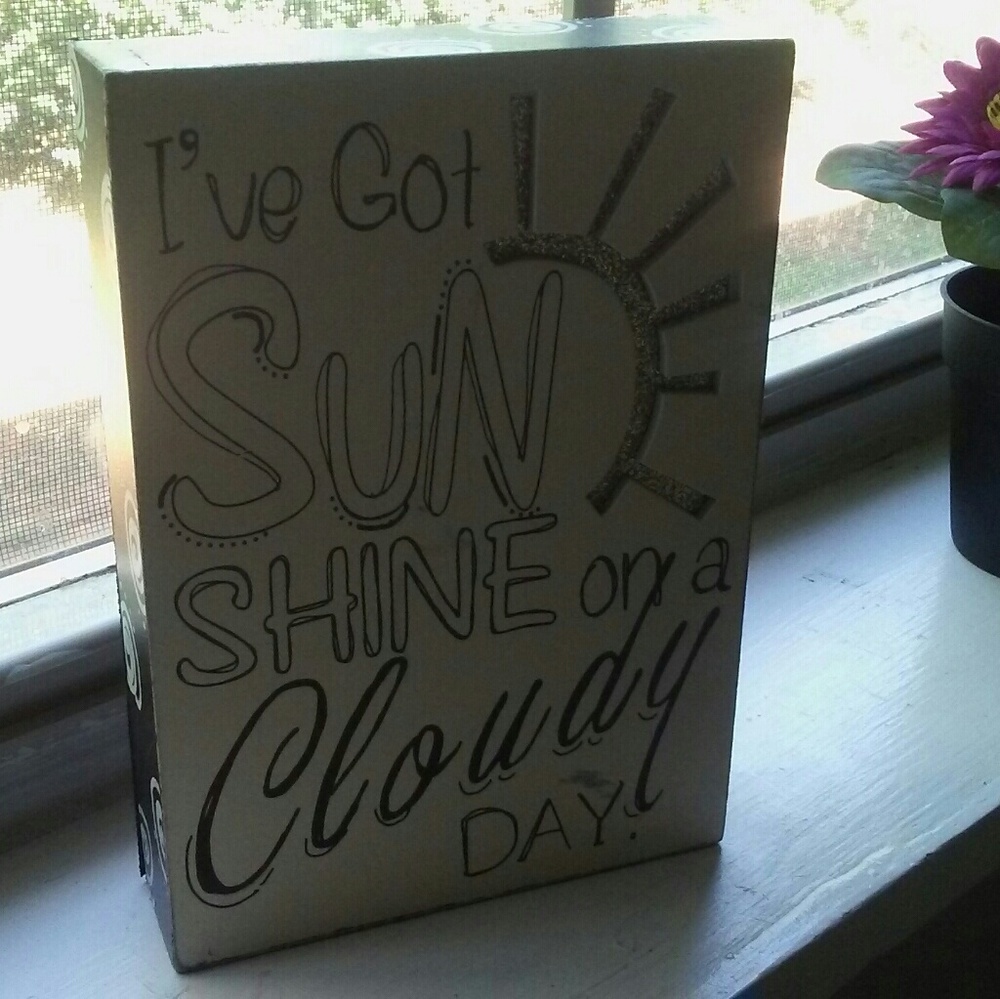 I've Got
SUN
SHINE on a
Cloudy
DAY.